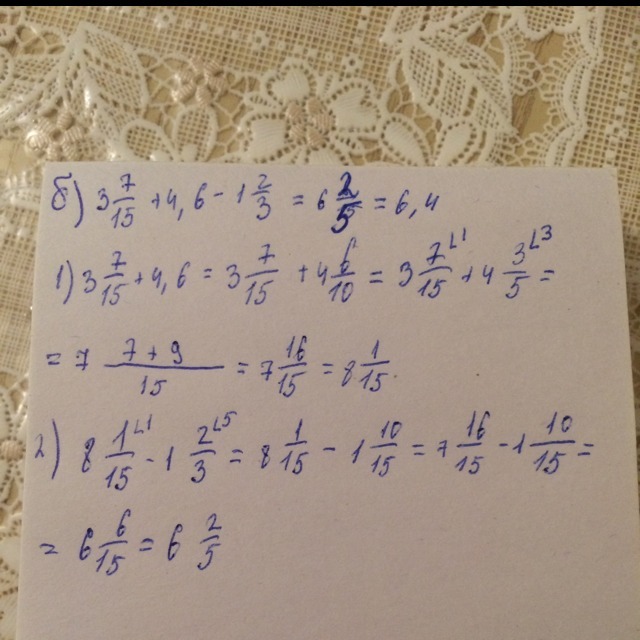 б) 3 7/15 + 4,6 - 1 2/3 = 6 2/5 = 6,4
1) 3 7/15 + 4,6 = 3 7/15 + 4 6/10 = 3 7/15 ∟1 + 4 3/5 ∟3 =
= 7 (7+9)/15 = 7 16/15 = 8 1/15.
2) 8 1/15 ∟1 - 1 2/3 ∟5 = 8 1/15 - 1 10/15 = 7 16/15 - 1 10/15 =
= 6 6/15 = 6 2/5